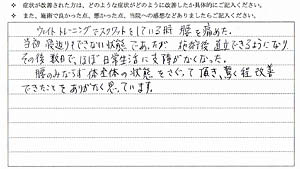 ※ 症状が改善された方は、どのような症状がどのように改善したか具体的にご記入ください。
※ また、施術で良かった点、悪かった点、当院への感想などありましたらご記入ください。
ウェイトトレーニングでスクワットをしている時 腰を痛めた。
当初 寝返りもできない状態であったが 施術後 直立できるようになり
その後 数日で、ほぼ日常生活に支障がなくなった。
腰のみならず 体全体の状態をさぐって頂き、驚く程 改善
できたことをありがたく思っています。